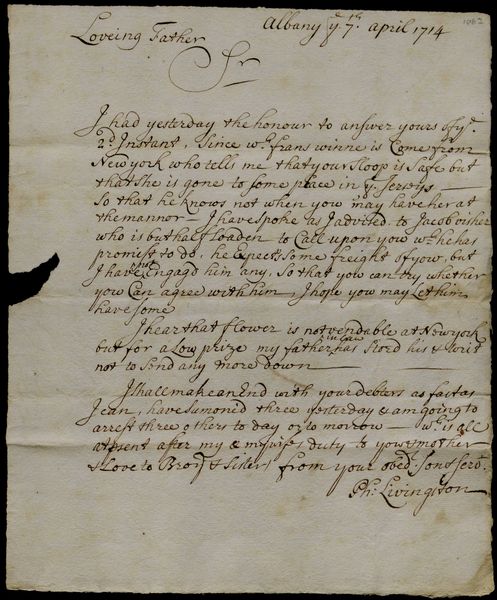 1082
Albany ye 7th april 1714
Loveing Father
Sr
I had yesterday the honour to answer yours of ye
2d Instant, Since wh frans winne is Come from
New york who tells me that your Sloop is Safe but
that She is gone to some place in ye Jerseys
So that he knows not when you may have her at
the mannor — I have Spoke as I advised to Jacob visher
who is but half loaden to Call upon you wh he has
promist to do, he Expects Some freight of you, but
I have not Engagd him any, So that you can try whether
you Can agree with him I hope you may Let him
have Some
I hear that flower is not vendable at New york
but for a Low prize my father in law has Stord his & writ
not to Send any more down
I shall make an End with your debters as fast as
I can, have sumonid three yesterday & am going to
arrest three others to day or to morrow — wh is all
at present after my & my wifes duty to you & mother
& Love to Bror & Sisters from your obedt Son & Servt
Ph: Livingston